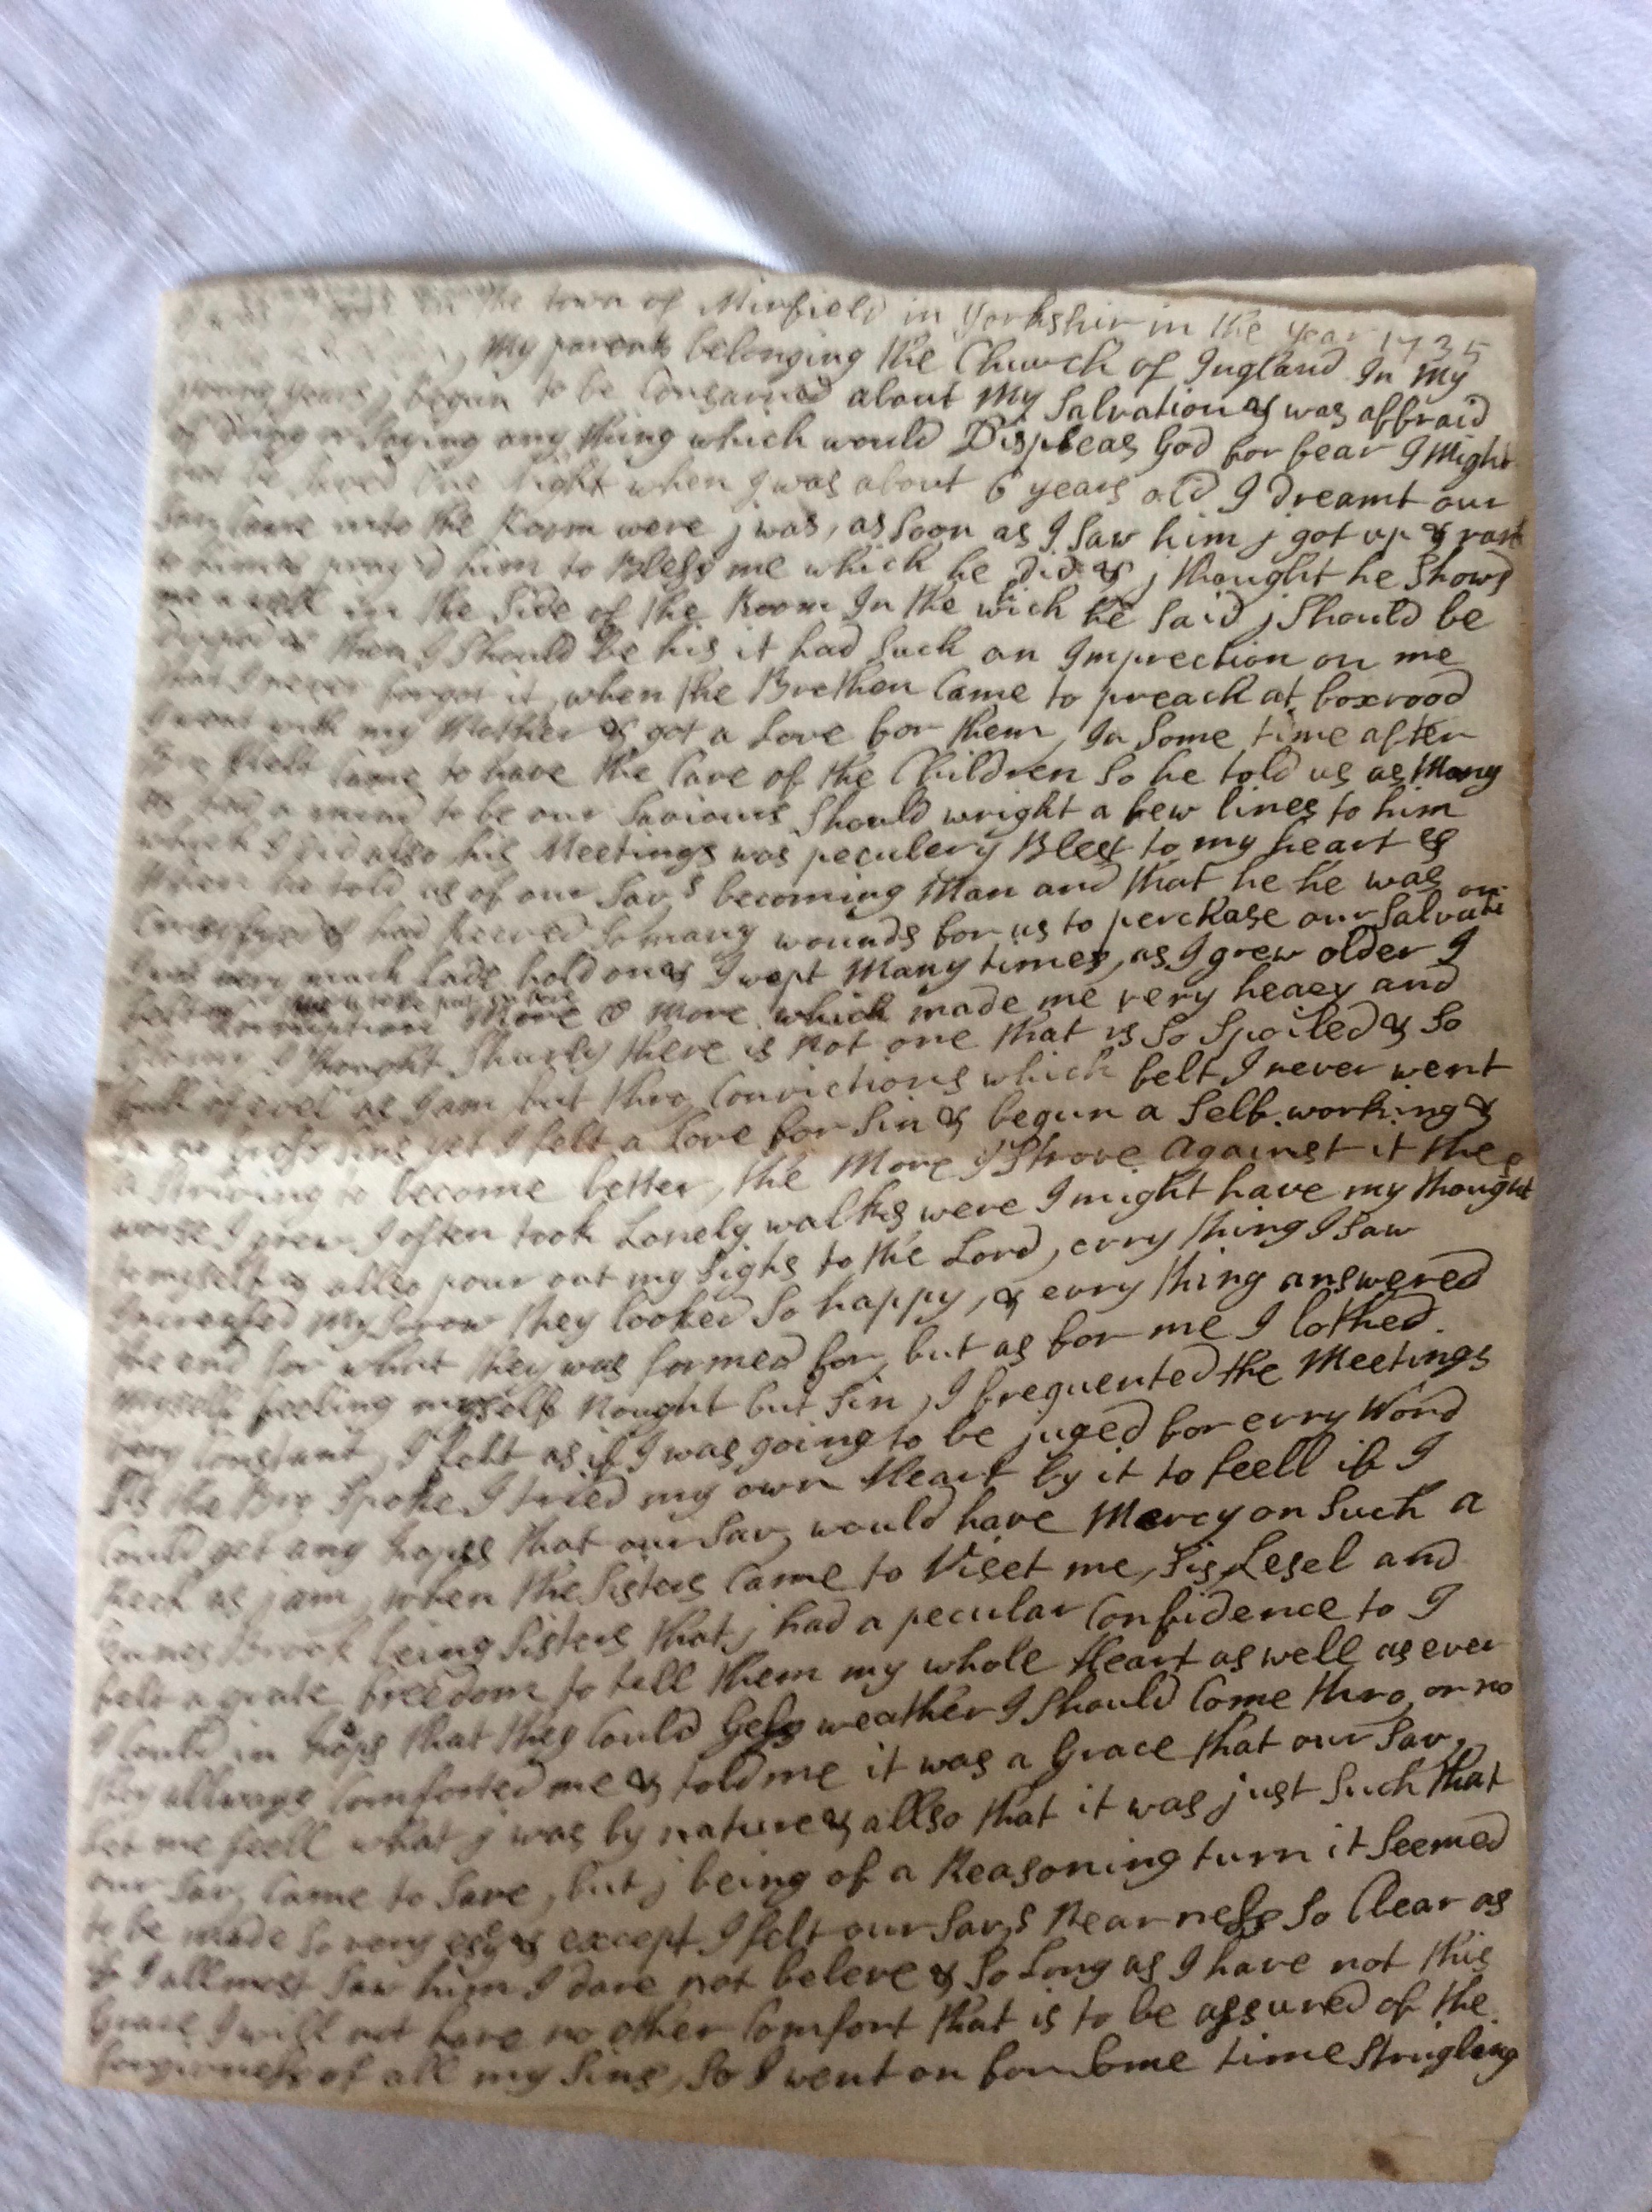 the town of Mirfield in Yorkshir in the year 1735
My parents belonging the Church of Ingland In my
young years j begun to be Consarned about My Salvation & was affraid
of doing or Saying any thing which would Displeas God for fear I Might
not be Saved One Night when I was about 6 years old I dreamt our
Sav Came into the Room were j was, as Soon as I Saw him j got up & ran
to him & pray'd him to Bless me which he did & j thought he Showd
me a well in the Side of the Room In the wich he Said j Should be
& then I Should be his it had Such an Imprection on me
that I never forgot it, when the Brethen Came to preach at boxrood
I went with my Mother & got a Love for them, In Some time after
Bro Came to have the Care of the Children So he told us as Many
as had a mind to be our Saviours Should wright a few lines to him
which I did allso his Meetings was peculery Blest to my heart &
When he told us of our Savs becoming Man and that he he was
& had so many wounds for us to perckase our Salvation
I was very much Lade hold on & I wept Many times, as I grew older I
felt my Corruption More & More which made me very heavy and
I thought Shurly there is not one that is So Spoiled & So
full of evel as I am but thro Convictions which felt I never went
in no gross Sins yet I felt a Love for Sin & begun a Self working &
a Striving to become better, the More I Strove Against it the
worse I grew I often took Lonely walks were I might have my thoughts
to myself & allso pour out my Sighs to the Lord, evry thing I Saw
Increased my Sorow they looked So happy, & evry thing answered
the end for what they was formed for, but as for me I lothed
myself feeling myself Nought but Sin, I frequented the Meetings
very Constant, I felt as if I was going to be juged for evry Word
As the Bro Spoke I tried my own Heart by it to feell if I
Could get any hopes that our Sav, would have Mercy on Such a
as j am, when the Sisters Came to Viset me, Sis, Lesel and
Brook being Sisters that j had a pecular Confidence to I
felt a grate freedom to tell them my whole Heart as well as ever
I Could in hops that they Could Gess weather I Should Come thro, or no
they allways Comforted me & told me it was a Grace that our Sav,
let me feell what j was by nature & allso that it was just Such that
our Sav, Came to Save, but j being of a Reasoning turn it Seemed
to be made So very esy & except I felt our Savs Nearness So Clear as
if I allmost Saw him I dare not beleve & So Long as I have not this
Grace I will not have no other Comfort that is to be assured of the
forgivness of all my Sins, So I went on for Some time Strugleing